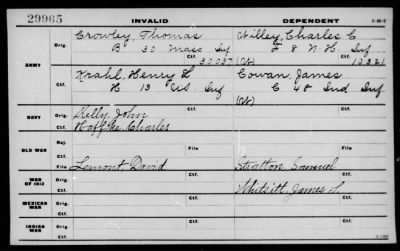 29965 INVALID DEPENDENT
3-362
ARMY
Orig. Crowley, Thomas Willey, Charles C
B 30 Mass Inf F 8 N.H. Inf
Ctf. 30037 Ctf. 10321
Orig. Krahl, Henry L Cowan, James
H 13 US Inf C 48 Ind Inf
Ctf. Ctf.
NAVY Orig. Kelly, John
Ctf. Charles
OLD WAR Rej.
Ctf. File File
WAR OF 1812 Orig. Lemont, David Stratton, Samuel
Ctf. Ctf. Whitsitt, James L
MEXICAN WAR Orig.
Ctf.
INDIAN WAR Orig.
Ctf.